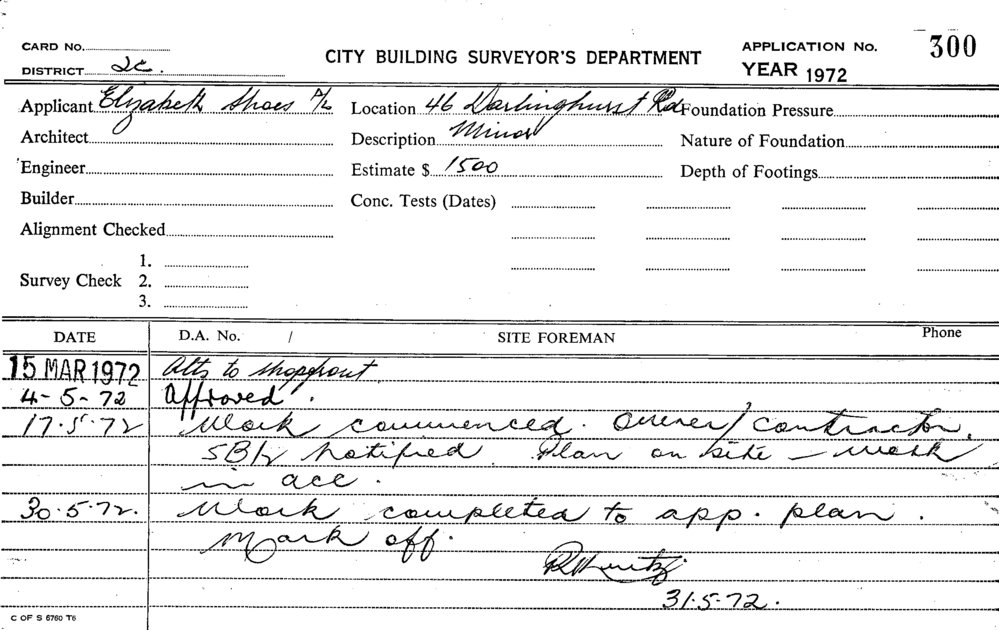 CARD No.
DISTRICT 2c.
CITY BUILDING SURVEYOR'S DEPARTMENT
APPLICATION No. 300
YEAR 1972
Applicant Elizabeth Shoes P/L Location 46 Darlinghurst Rd Foundation Pressure
Architect Description Minor Nature of Foundation
Engineer Estimate $ 1500 Depth of Footings
Builder Conc. Tests (Dates)
Alignment Checked
1.
Survey Check 2.
3.
DATE D.A. No. / SITE FOREMAN Phone
15 MAR 1972 Alts to shopfront
4-5-72 Approved.
17.5.72 Work commenced. Owner/contractor.
notified. Plan on site - work
in acc.
30.5.72. Work completed to app. plan.
Mark off.
31.5.72.
C OF S 6760 T6